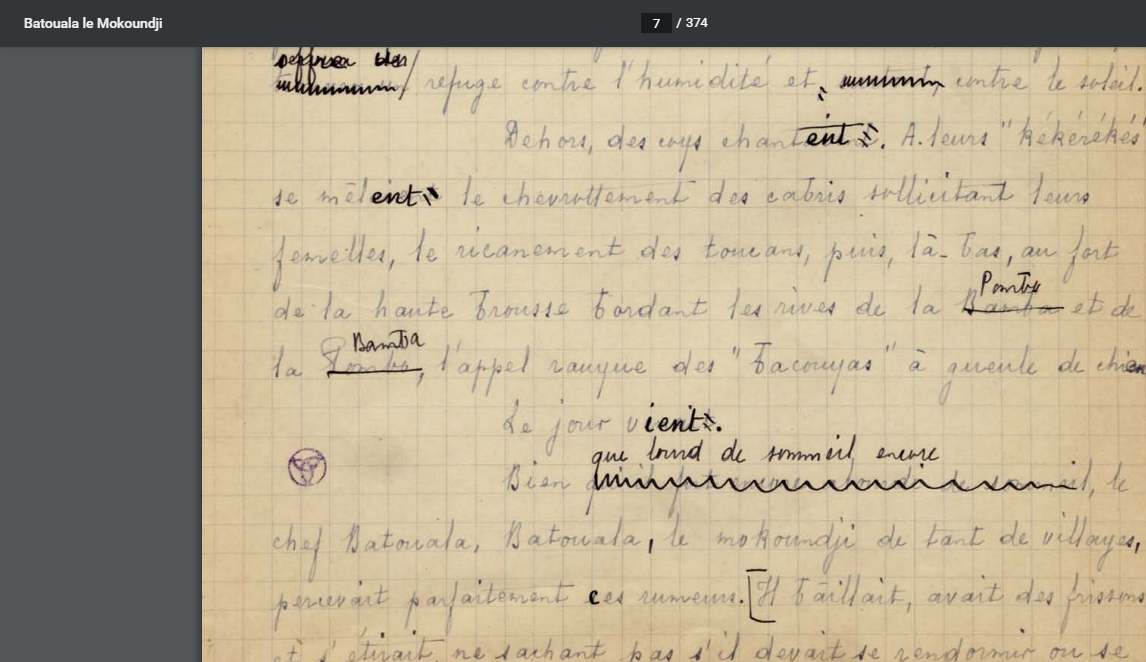 Batouala le Mokoundji
7 / 374
refuge contre l'humidité et, contre le soleil.
Dehors, des coqs chantent. A leurs "kékérékés
se mêlent le chevrottement des cabris sollicitant leurs
femelles, le ricanement des toucans, puis, là-bas, au fort
Pomba
de la haute brousse bordant les rives de la Bamba et de
Bamba
la Pomba, l'appel rauque des "bacouyas" à gueule de chien
Le jour vient.
que lourd de sommeil encore
Bien, le
chef Batouala, Batouala, le mokoundji de tant de villages,
percevait parfaitement ces rumeurs. [Il bâillait, avait des frissons
et s'étirait, ne sachant pas s'il devait se rendormir ou se